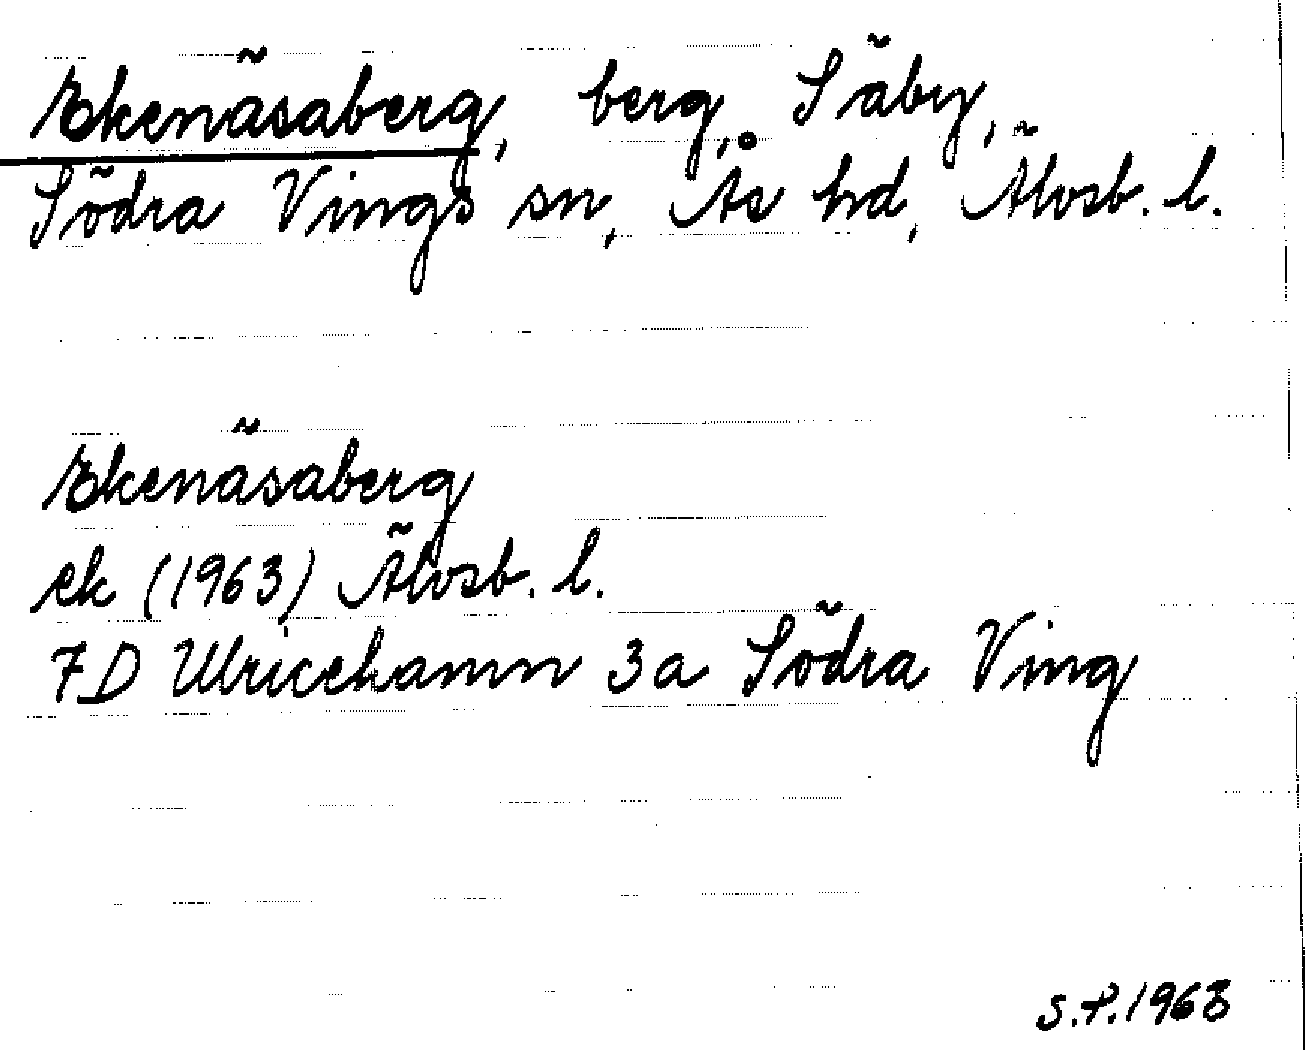 Ekenäsaberg, berg, Säby,
Södra Vings sn, Ås hd, Älvsb. l.
Ekenäsaberg
ek (1963) Älvsb. l.
7D Ulricehamn 3a Södra Ving
S.P. 1963